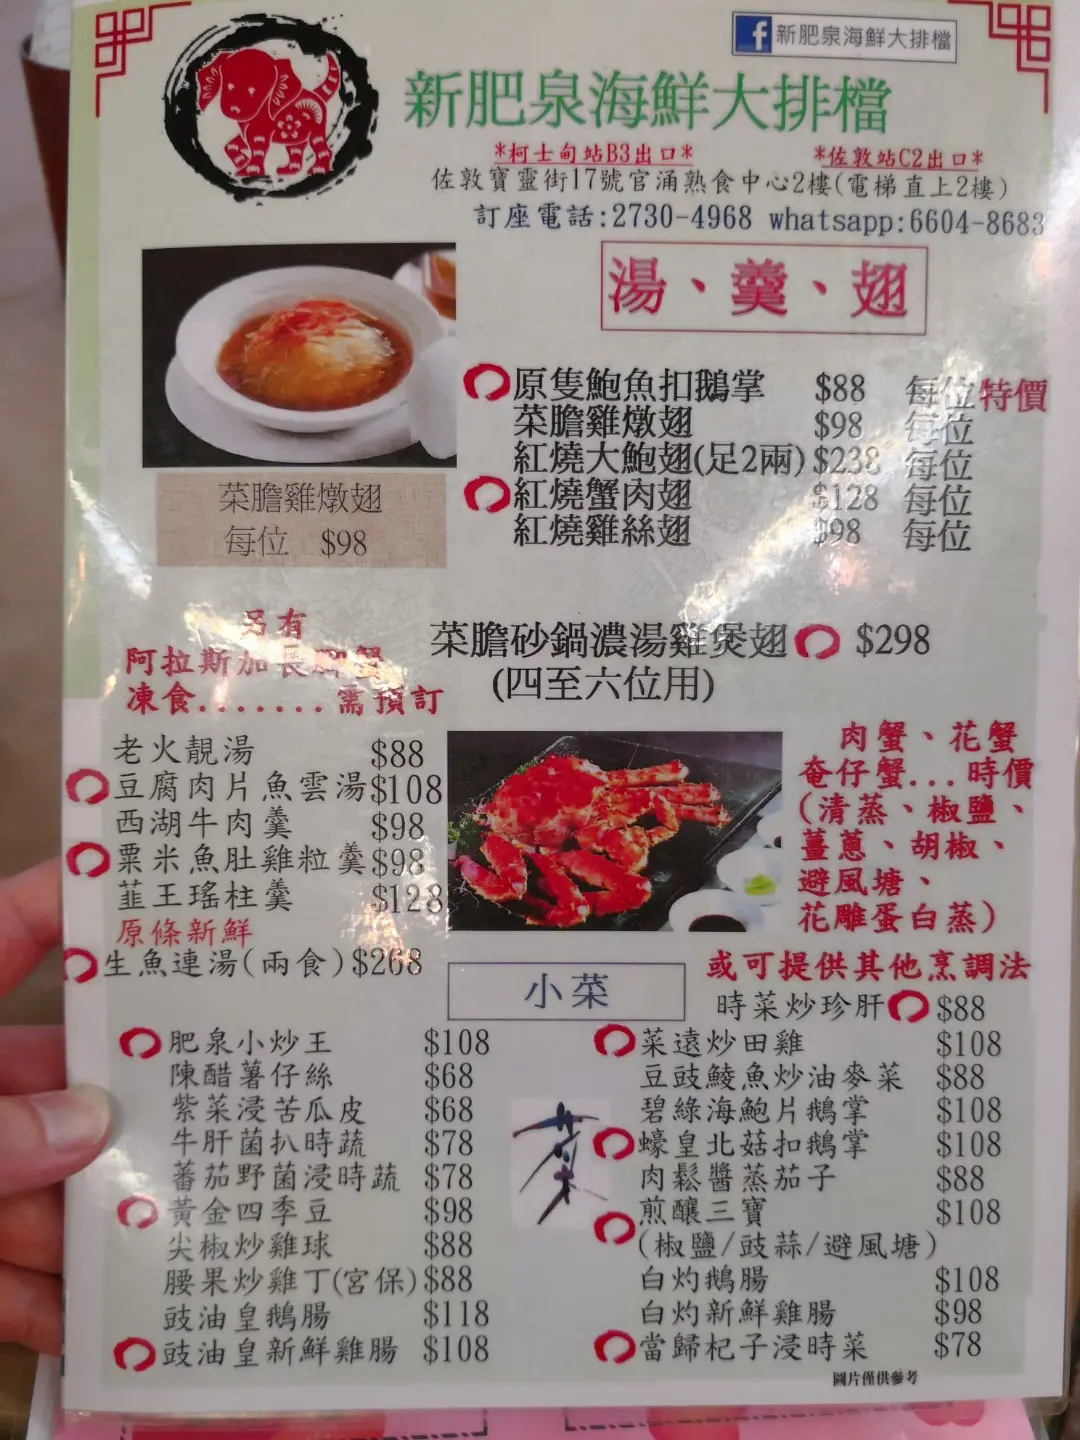 新肥泉海鮮大排檔
新肥泉海鮮大排檔
*柯士甸站B3出口* *佐敦站C2出口*
佐敦寶靈街17號官涌熟食中心2樓(電梯直上2樓)
訂座電話:2730-4968 whatsapp:6604-8683
湯、羹、翅
原隻鮑魚扣鵝掌 $88 每位特價
菜膽雞燉翅 $98 每位
紅燒大鮑翅(足2兩) $238 每位
紅燒蟹肉翅 $128 每位
紅燒雞絲翅 $98 每位
菜膽雞燉翅
每位 $98
菜膽砂鍋濃湯雞煲翅 $298
(四至六位用)
另有
阿拉斯加長腳蟹
凍食.......需預訂
老火靚湯 $88
豆腐肉片魚雲湯 $108
西湖牛肉羹 $98
粟米魚肚雞粒羹 $98
韮王瑤柱羹 $128
原條新鮮
生魚連湯(兩食) $268
肉蟹、花蟹
奄仔蟹...時價
(清蒸、椒鹽、
薑蔥、胡椒、
避風塘、
花雕蛋白蒸)
或可提供其他烹調法
小菜
時菜炒珍肝 $88
肥泉小炒王 $108
陳醋薯仔絲 $68
紫菜浸苦瓜皮 $68
牛肝菌扒時蔬 $78
蕃茄野菌浸時蔬 $78
黃金四季豆 $98
尖椒炒雞球 $88
腰果炒雞丁(宮保) $88
豉油皇鵝腸 $118
豉油皇新鮮雞腸 $108
菜
菜遠炒田雞 $108
豆豉鯪魚炒油麥菜 $88
碧綠海鮑片鵝掌 $108
蠔皇北菇扣鵝掌 $108
肉鬆醬蒸茄子 $88
煎釀三寶 $108
(椒鹽/豉蒜/避風塘)
白灼鵝腸 $108
白灼新鮮雞腸 $98
當歸杞子浸時菜 $78
圖片僅供參考